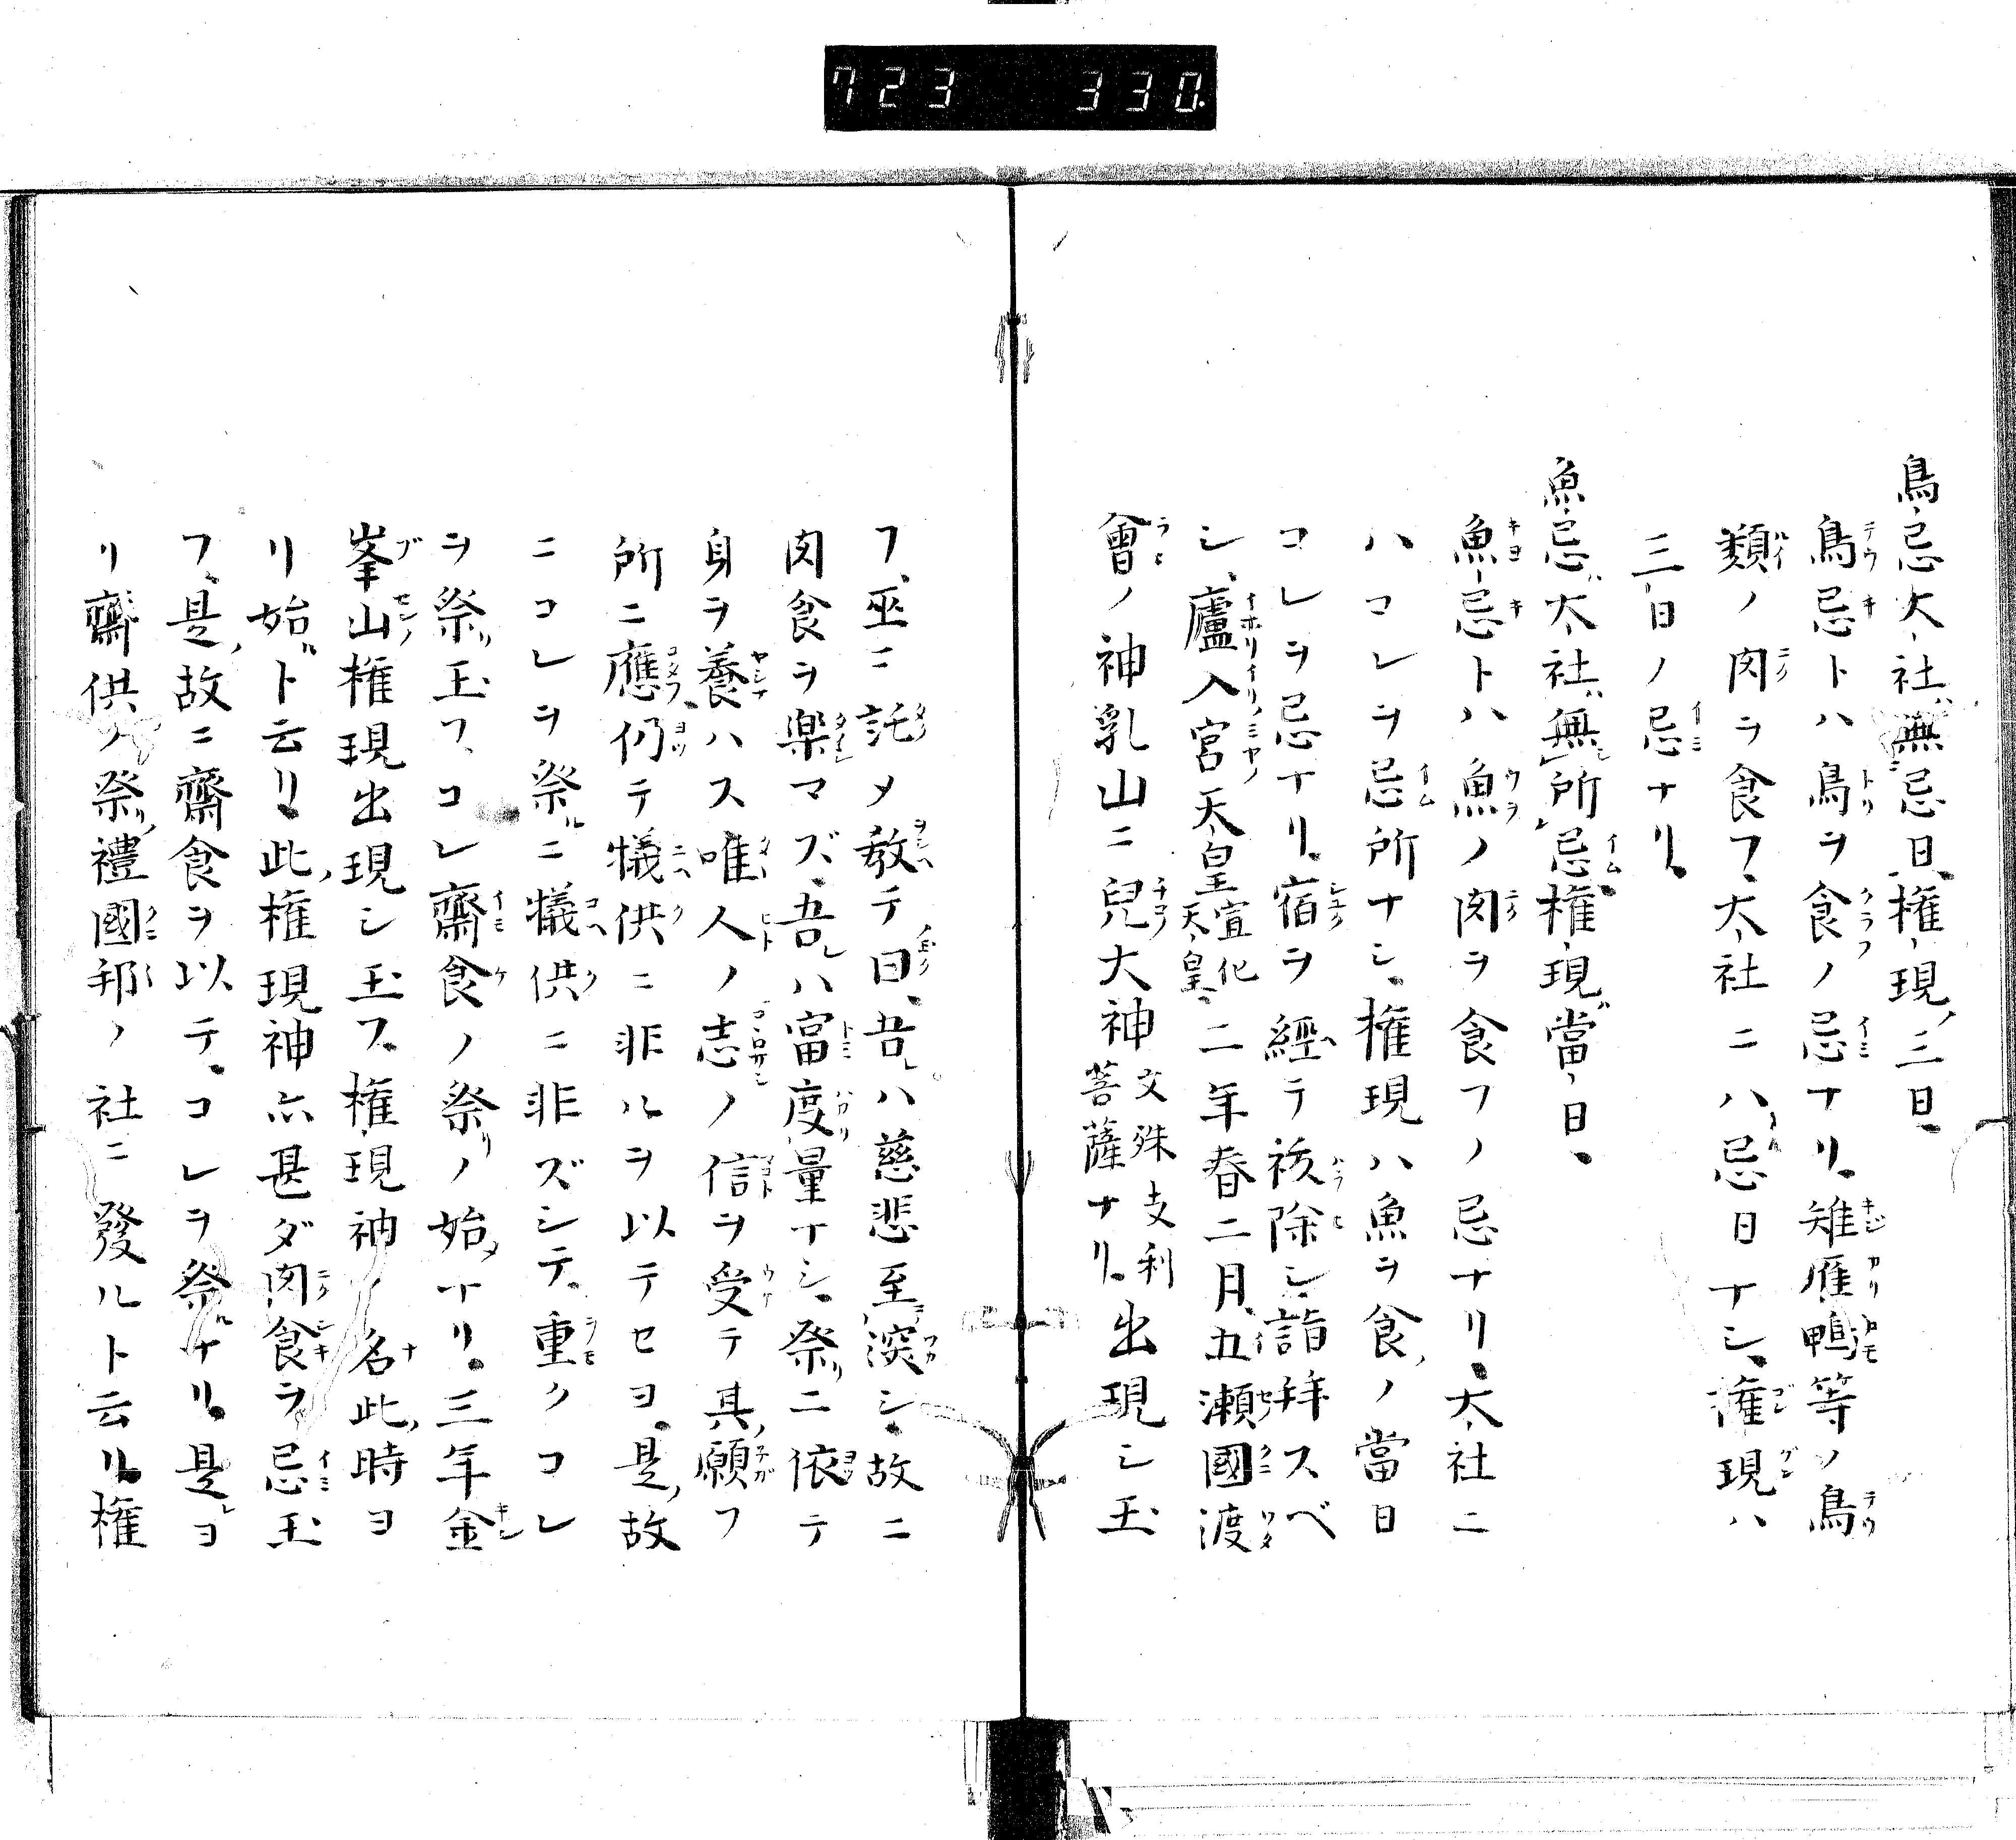 723 330.
鳥忌大社無忌日、権現三日、
鳥忌トハ鳥ヲ食ノ忌ナリ。雉雁鴨等ノ鳥
類ノ肉ヲ食フ、大社ニハ忌日ナシ、権現ハ
三日ノ忌ナリ。
魚忌大社無所忌、権現當日、
魚忌トハ魚ノ肉ヲ食フノ忌ナリ。大社ニ
ハコレヲ忌所ナシ、権現ハ魚ヲ食ノ當日
コレヲ忌ナリ。宿ヲ經テ祓除シ詣拜スベ
シ、廬入宮天皇宣化天皇、二年春二月、五瀬國渡
會ノ神乳山ニ兒大神文殊支利菩薩ナリ。出現シ玉
フ、巫ニ託メ教テ曰、吾ハ慈悲至深シ、故ニ
肉食ヲ楽マズ、吾ハ富度量ナシ、祭ニ依テ
身ヲ養ハス唯人ノ志ノ信ヲ受テ其願フ
所ニ應、仍テ犠供ニ非ルヲ以テセヨ。是故
ニコレヲ祭ニ犠供ニ非ズシテ、重クコレ
ヲ祭玉フ、コレ齋食ノ祭ノ始ナリ。三年金
峯山権現出現シ玉フ、権現神ノ名此時ヨ
リ始ト云リ。此権現神亦甚ダ肉食ヲ忌玉
フ、是故ニ齋食ヲ以テ、コレヲ祭ナリ。是ヨ
リ齋供ノ祭禮國邦ノ社ニ發ルト云リ。権